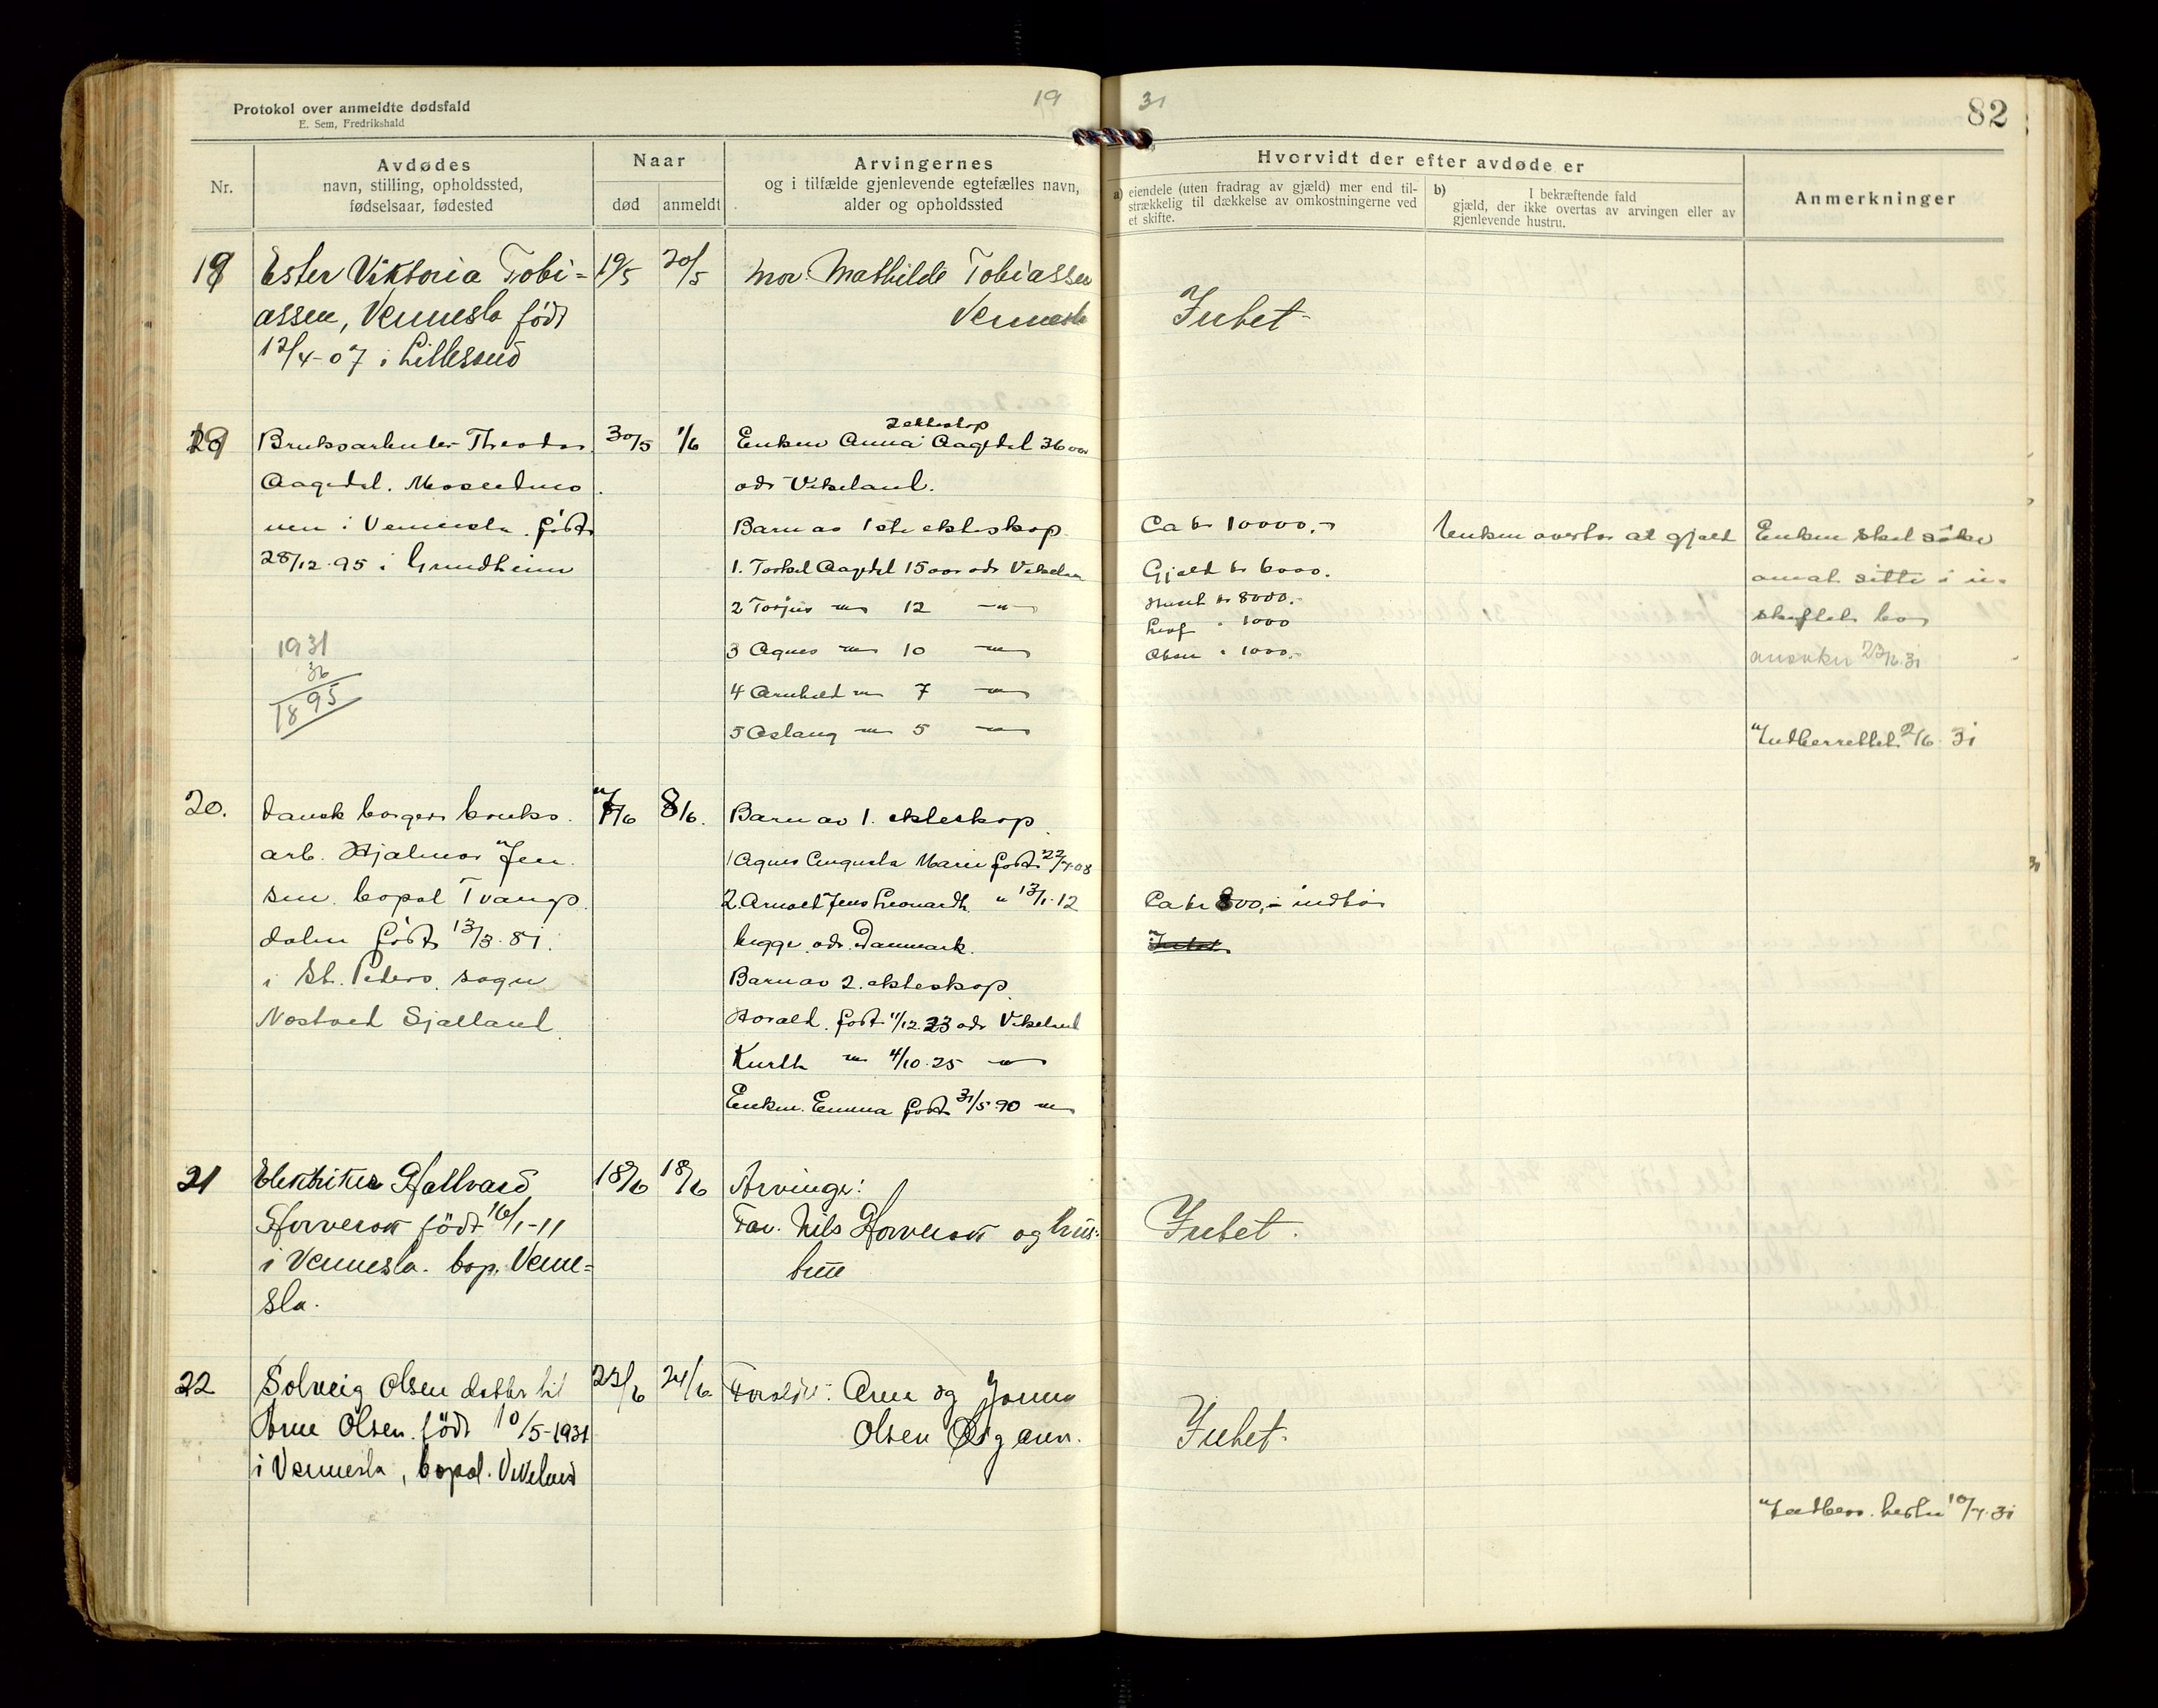 Protokol over anmeldte dødsfald
E. Sem, Fredrikshald
19 31
82
Nr.
Avdødes
navn, stilling, opholdssted,
fødselsaar, fødested
Naar
død
anmeldt
Arvingernes
og i tilfælde gjenlevende egtefælles navn,
alder og opholdssted
Hvorvidt der efter avdøde er
a) eiendele (uten fradrag av gjæld) mer end til-
strækkelig til dækkelse av omkostningerne ved
et skifte.
b) I bekræftende fald
gjæld, der ikke overtas av arvingen eller av
gjenlevende hustru.
Anmerkninger
18
Ester Viktoria Tobi=
assen, Vennesla født
12/4-07 i Lillesand
19/5
20/5
Mor Mathilde Tobiassen
Vennesla
Intet
19
Bruksarbeider Theodor
Aagedal. Moseidmo
nen i Vennesla. født
28/12.95 i Grindheim
1931
36
1895
30/5
1/6
2 ekteskap
Enken Anna Aagedal 36 aar
adr Vikeland.
Barn av 1ste ekteskap
1. Torkel Aagedal 15 aar adr Vikeland
2 Torjus 12
3 Agnes 10
4 Arnhild 7
5 Aslaug 5
Ca kr 10000.-
Gjæld kr 6000.
kr 8000.-
1000
1000.-
Enken overtar al gjæld
Enken skal søke
om at sitte i u-
skiftet bo
ansøker 23/6.31
Indberettet 2/6 31
20.
Dansk borger bruks.
arb. Hjalmar Jen
sen. bopal Kvarp
dalen født 13/3.81.
i St. Peders sogn
Nestved Sjælland
7/6
8/6.
Barn av 1. ekteskap
1 Agnes Augusta Marie født 22/7.08
2. Arnold Jens Leonardh " 13/1.12
begge adr. Danmark.
Barn av 2. ekteskap
Harald. født 11/12.23 adr Vikeland
Kurth 4/10.25
Enken. Emma født 31/5.90
Ca kr 800,- indbo
Intet
21
Elektriker Hallvard
Horverak født 16/1-11
i Vennesla. bop. Venne=
sla.
18/6
18/6
Arvinge:
Far. Nils Horverak og hus-
true
Intet.
22
Solveig Olsen datter til
Arne Olsen. født 10/5-1931
i Vennesla, bopal. Vikeland
23/6
24/6
Foreldre: Arne og Jonna
Olsen
Intet.
Indber. 10/7.31